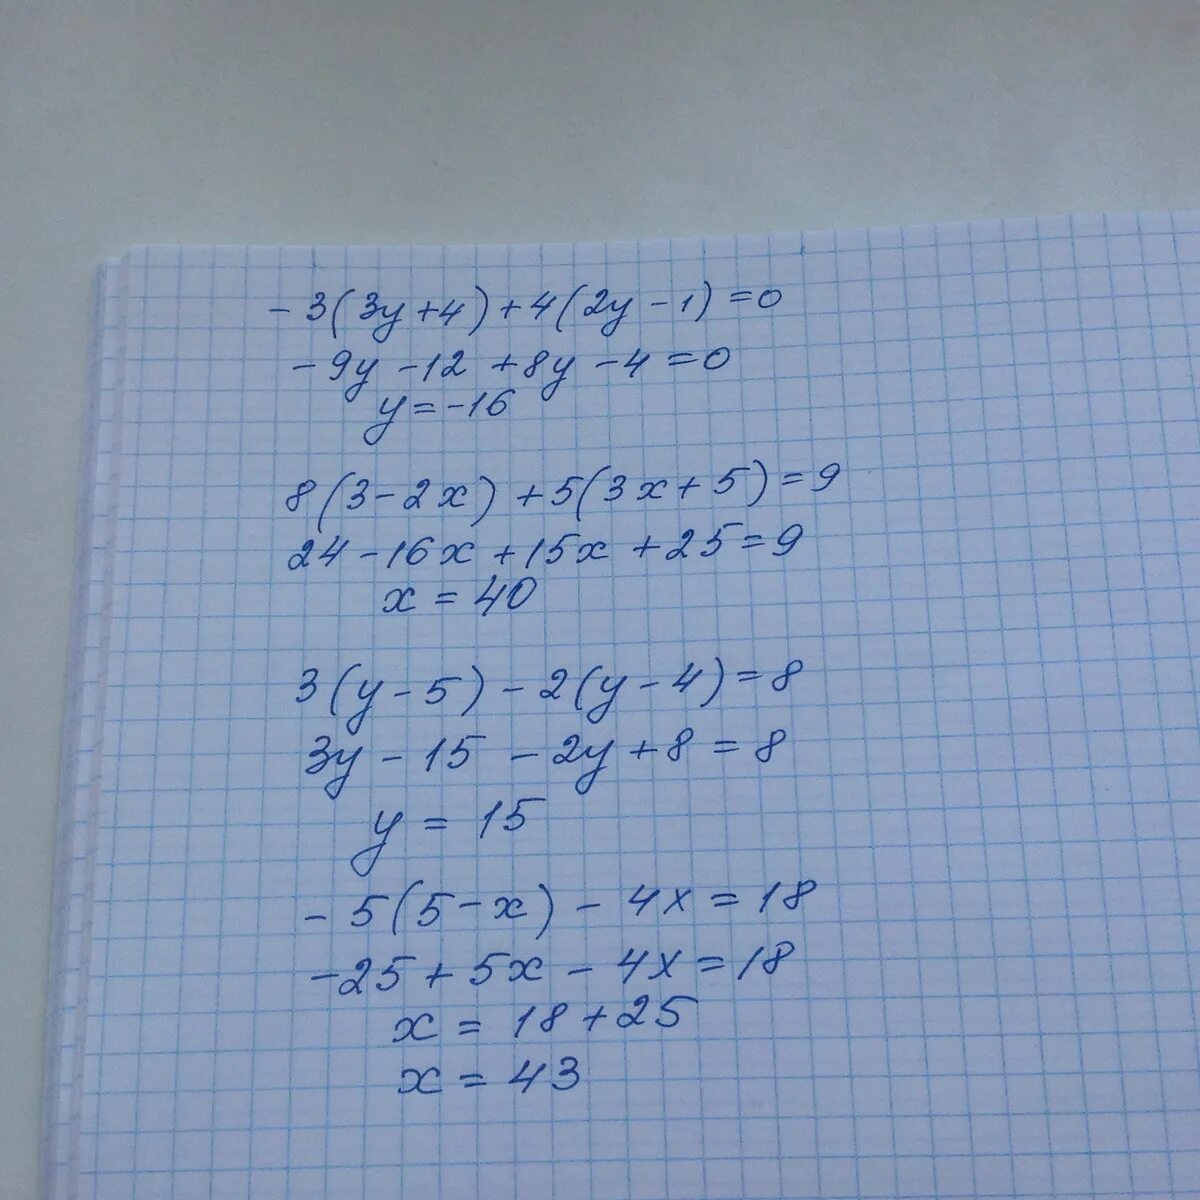 -3(3y+4)+4(2y-1)=0
-9y-12+8y-4=0
y=-16
8(3-2x)+5(3x+5)=9
24-16x+15x+25=9
x=40
3(y-5)-2(y-4)=8
3y-15-2y+8=8
y=15
-5(5-x)-4x=18
-25+5x-4x=18
x=18+25
x=43